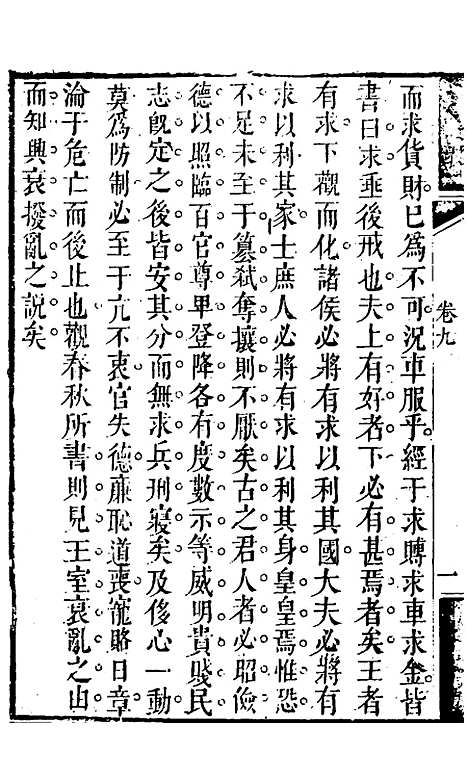 而求貨財已爲不可況車服乎經于求賻求車求金皆
書曰求垂後戒也夫上有好者下必有甚焉者矣王者
有求下觀而化諸侯必將有求以利其國大夫必將有
求以利其家士庶人必將有求以利其身皇皇焉惟恐
不足未至于篡弒奪攘則不厭矣古之君人者必昭儉
德以照臨百官尊卑登降各有度數示等威明貴賤民
志旣定之後皆安其分而無求兵刑寢矣及侈心一動
莫爲防制必至于亢不衷官失德廉恥道喪寵賂日章
淪于危亡而後止也觀春秋所書則見王室衰亂之由
而知興衰撥亂之說矣
卷九
一